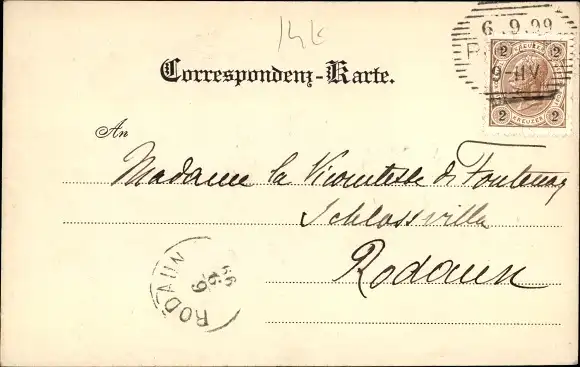 14k
6.9.99
2 2
9-11V
KREUZER
2 2
Correspondenz-Karte.
An
Madame la Vicomtesse de Fontenay
Schlossvilla
Rodaun
RODAUN
6 9
99
RODAUN